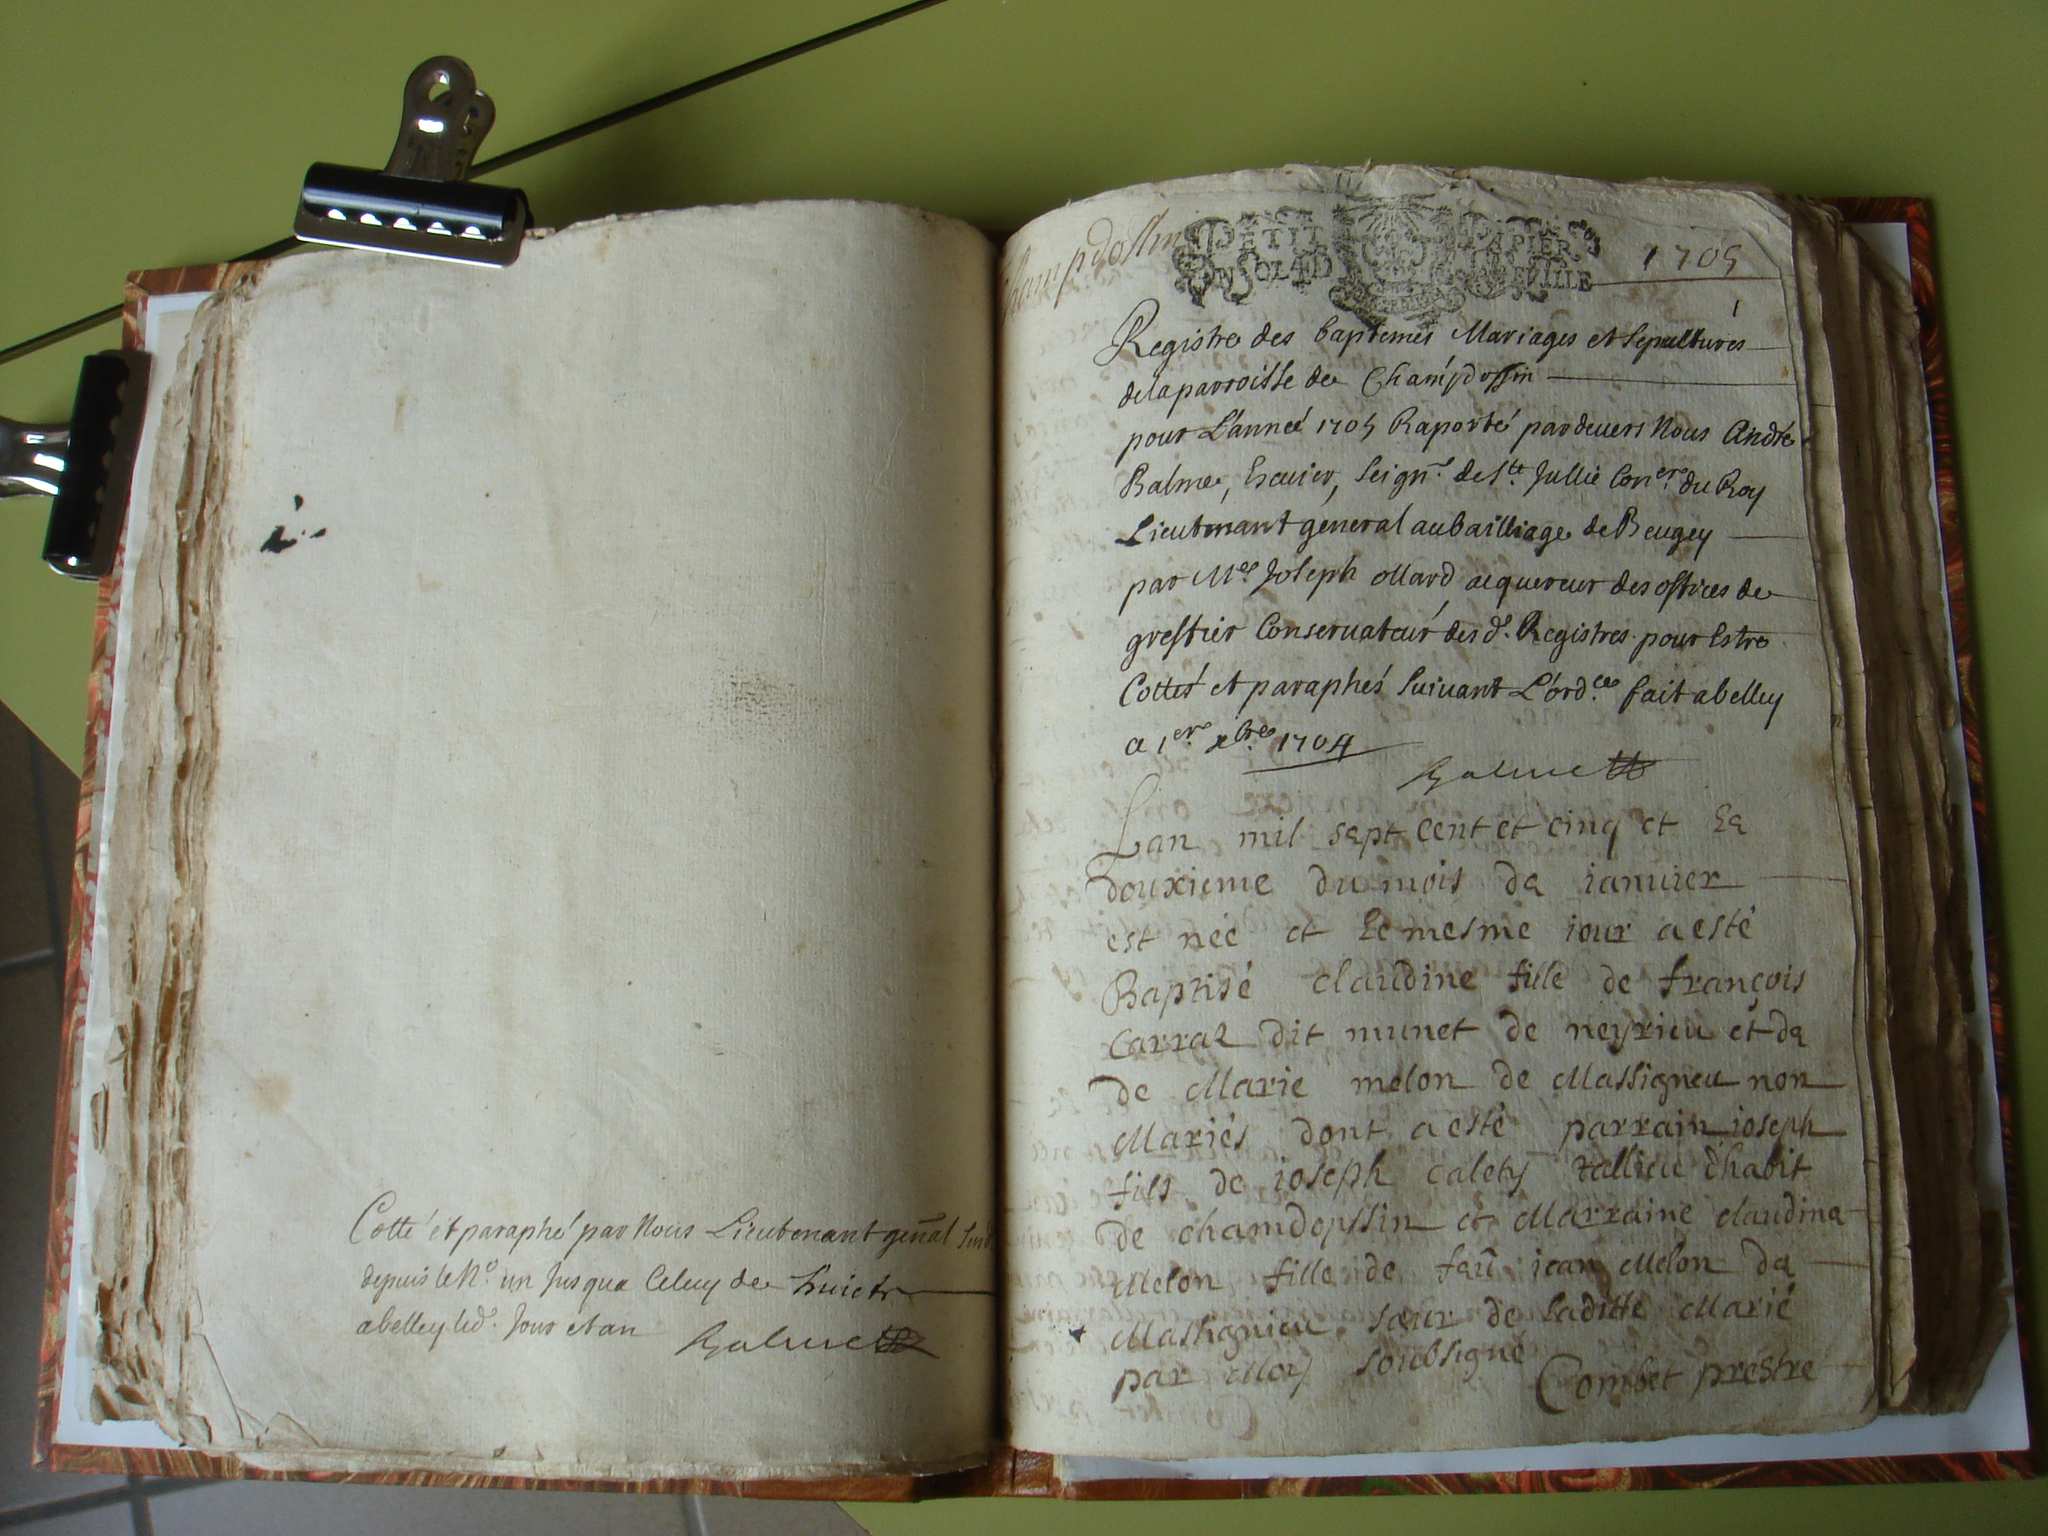 Cotté et paraphé par Nous Lieutenant gen̄al
depuis le N.o un Jusqua Celuy de huict
abelley led. Jour et an Balme
Champdossin
PETIT PAPIER
UN SOL 4 D LA FEUILLE
1705
1
Registre des baptemes Mariages et sepultures
de la parroisse de Champdossin
pour L'année 1705 Raporté pardevers Nous André
Balme, Escuier, seign.r de S.te Jullie Con.er du Roy
Lieutenant general au bailliage de Beugey
par M.re Joseph ollard acquereur des offices de
greffier Conservateur des d. Registres pour Estre
Cottés et paraphés suivant L'ord.ce fait abelley
a 1.er xbre 1704
Balme
Lan mil sept cent et cinq et le
douxieme du mois de ianvier
est née et le mesme iour a esté
Baptisé claudine fille de françois
carral dit munet de neyrieu et de
de Marie melon de Massigneu non
Mariés dont a esté parrain ioseph
fils de ioseph calety d'habit
de chamdossin et Marraine claudina
Melon fille de feu iean Melon de
Massignieu sœur de laditte Marié
par Moy soubsigné Combet prestre